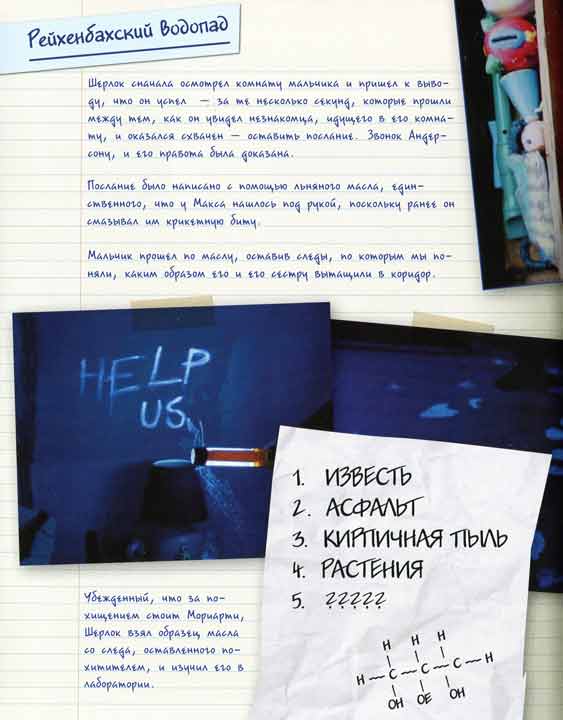 Рейхенбахский водопад
Шерлок сначала осмотрел комнату мальчика и пришел к выво-
ду, что он успел — за те несколько секунд, которые прошли
между тем, как он увидел незнакомца, идущего в его комна-
ту, и оказался схвачен — оставить послание. Звонок Андер-
сону, и его правота была доказана.
Послание было написано с помощью льняного масла, един-
ственного, что у Макса нашлось под рукой, поскольку ранее он
смазывал им крикетную биту.
Мальчик прошел по маслу, оставив следы, по которым мы по-
няли, каким образом его и его сестру вытащили в коридор.
HELP
US
1. ИЗВЕСТЬ
2. АСФАЛЬТ
3. КИРПИЧНАЯ ПЫЛЬ
4. РАСТЕНИЯ
5. ?????
Убежденный, что за по-
хищением стоит Мориарти,
Шерлок взял образец масла
со следа, оставленного по-
хитителем, и изучил его в
лаборатории.
H H H
H C C C H
OH OE OH